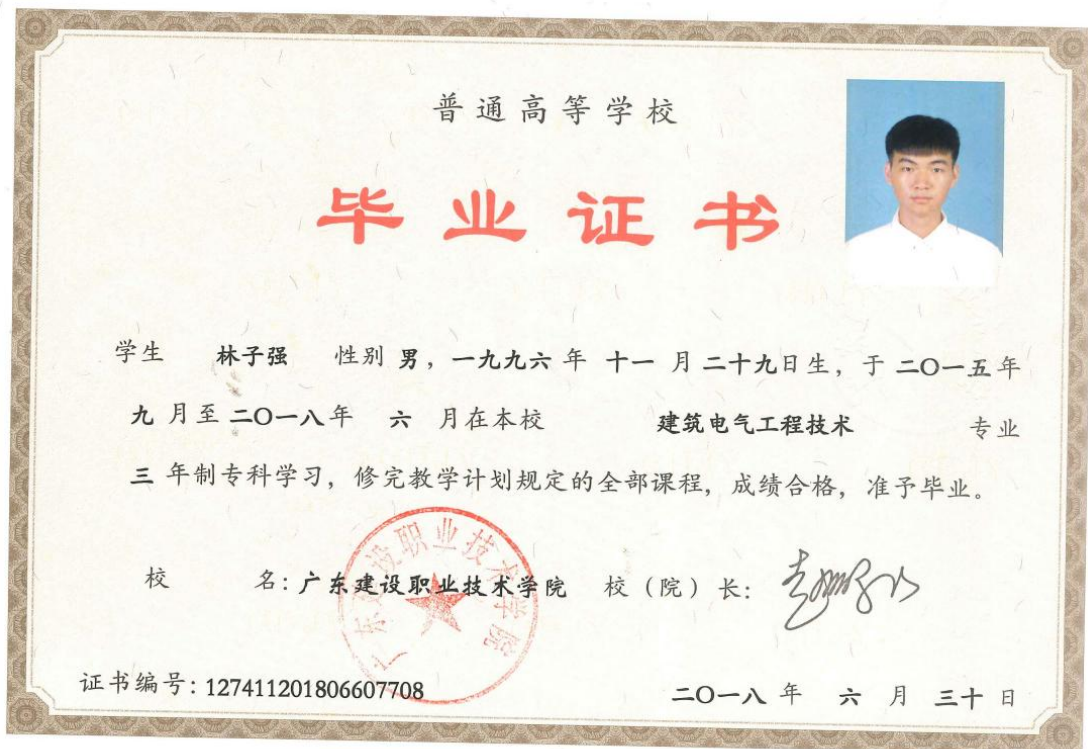 普通高等学校
毕业证书
学生 林子强 性别 男，一九九六 年 十一 月 二十九日生，于 二〇一五年
九 月至 二〇一八年 六 月在本校 建筑电气工程技术 专业
三 年制专科学习，修完教学计划规定的全部课程，成绩合格，准予毕业。
校 名：广东建设职业技术学院 校（院）长：
广东建设职业技术学院
证书编号：127411201806607708 二〇一八 年 六 月 三十 日